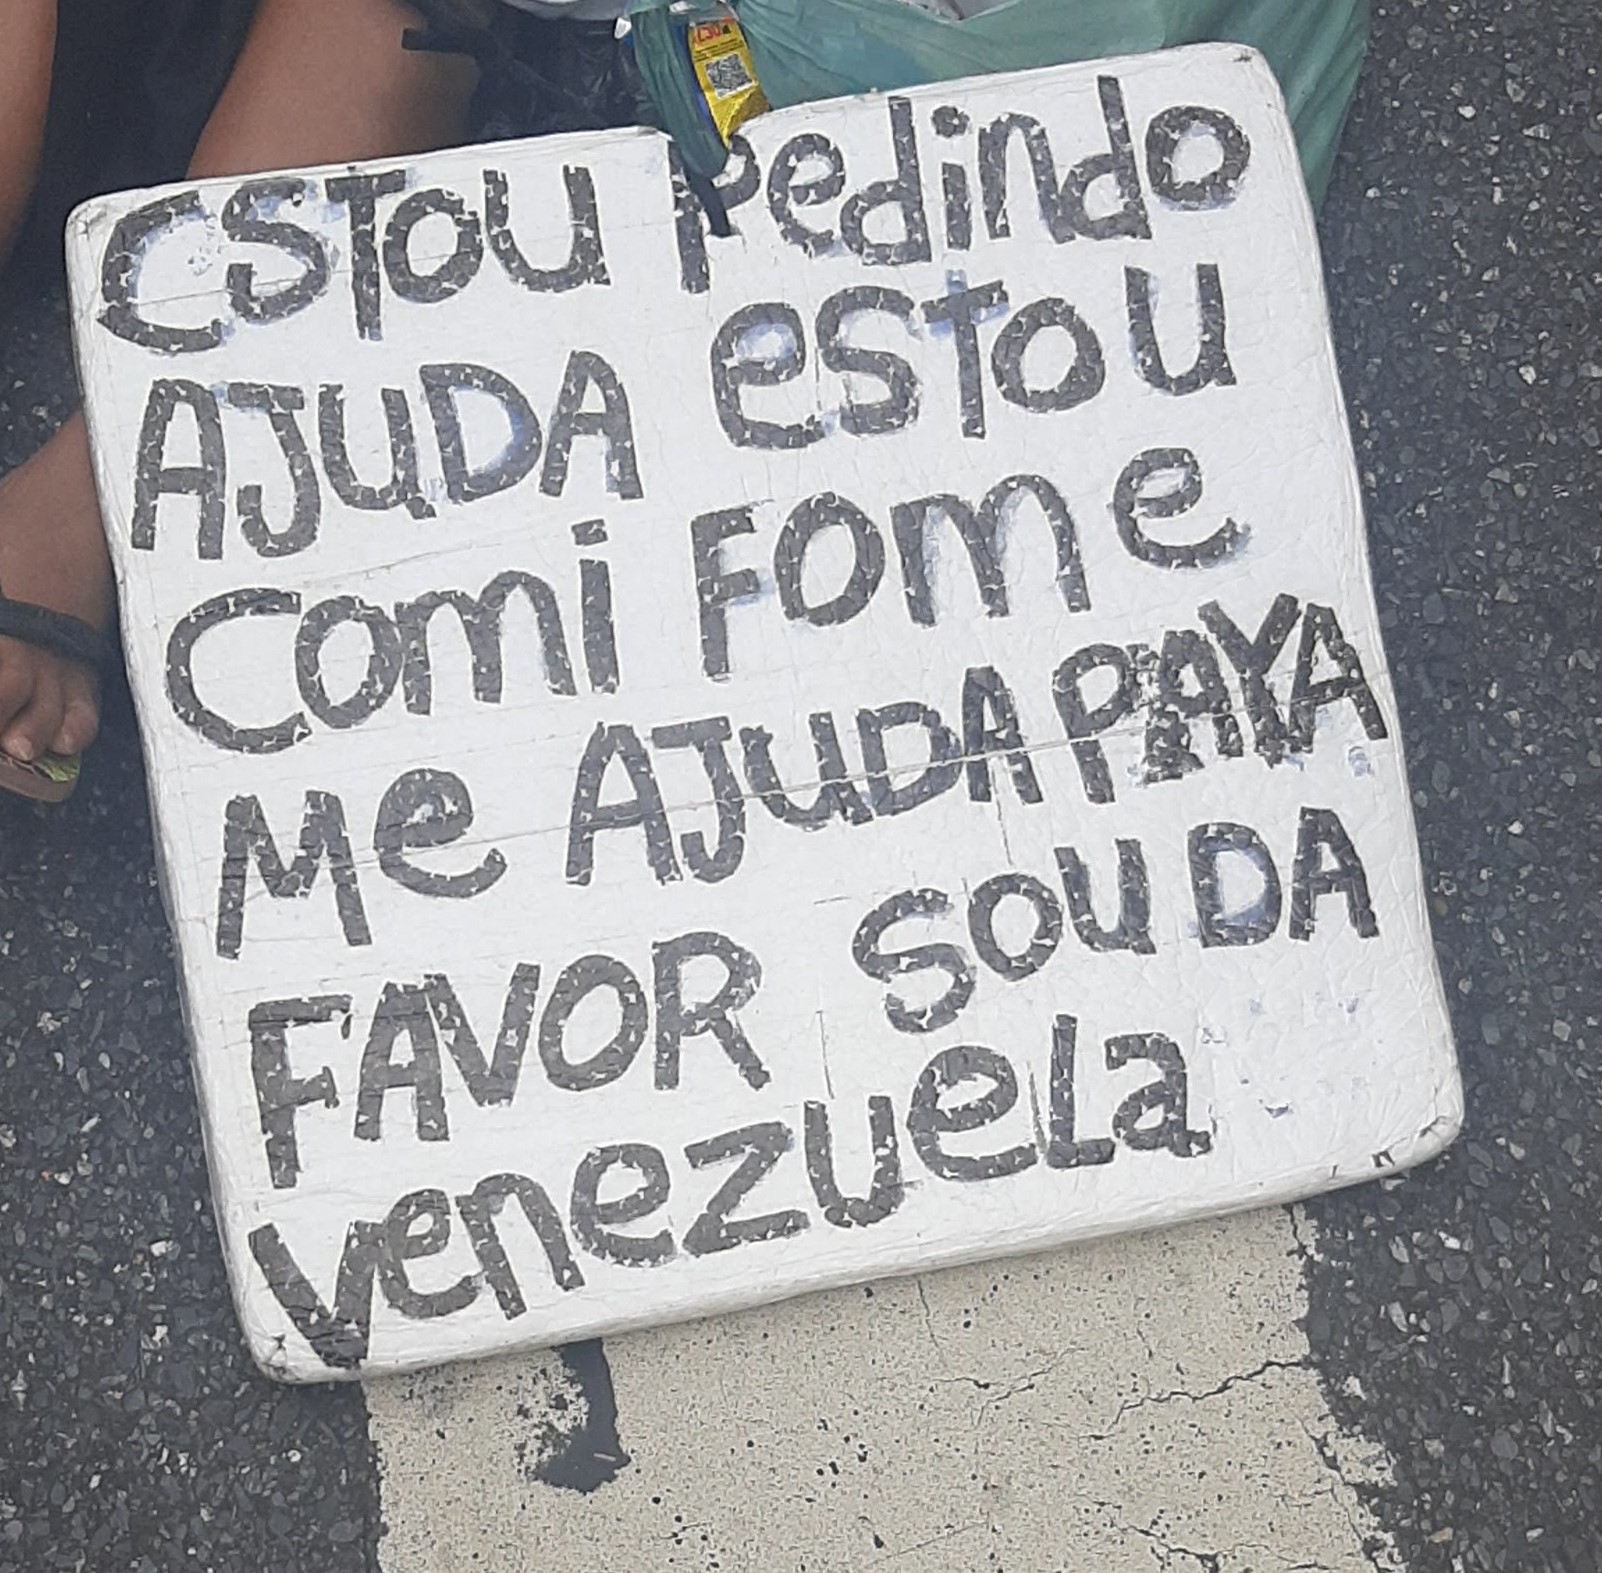 ESTOU Pedindo
AJUDA eSTOU
COmi FOme
Me AJUDA PAYA
FAVOR SOU DA
venezuela